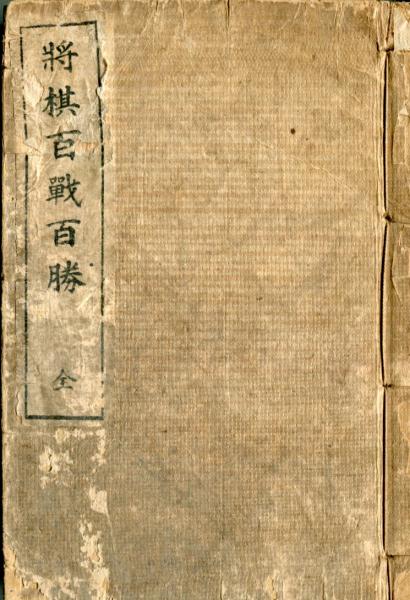 將棋百戰百勝
全